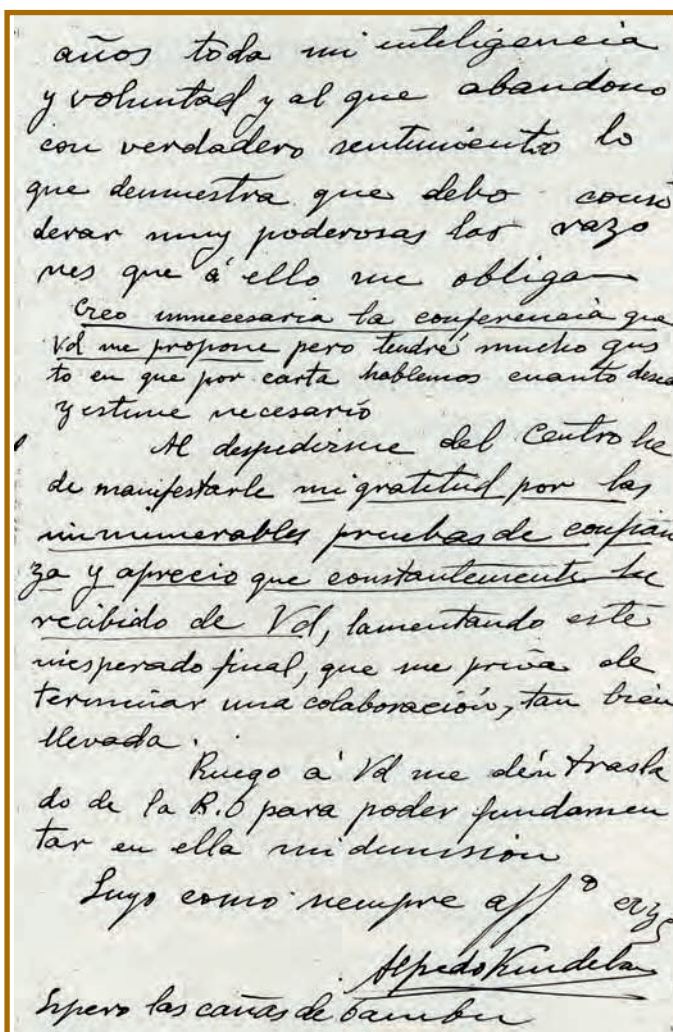 años toda mi inteligencia
y voluntad y al que abandono
con verdadero sentimiento lo
que demuestra que debo consi
derar muy poderosas las razo
nes que á ello me obligan
Creo innecesaria la conferencia que
Vd me propone pero tendré mucho gus
to en que por carta hablemos cuanto desee
y estime necesario
Al despedirme del Centro he
de manifestarle mi gratitud por las
innumerables pruebas de confian
za y aprecio que constantemente he
recibido de Vd, lamentando este
inesperado final, que me priva de
terminar una colaboración, tan bien
llevada.
Ruego á Vd me dén trasla
do de la R.O para poder fundamen
tar en ella mi dimisión
Suyo como siempre aff º
Alfredo Kindelan
Espero las cañas de bambu